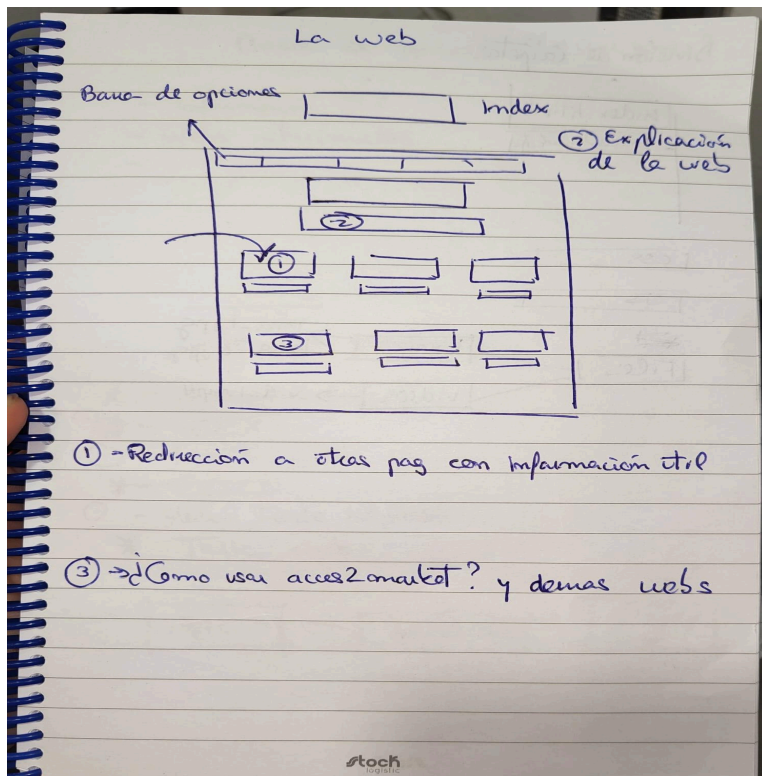 La web
Barra de opciones
Index
② Explicación
de la web
②
①
③
① - Redirección a otras pag con información útil
③ → ¿Como usar acces2market? y demas webs
stock
logistic